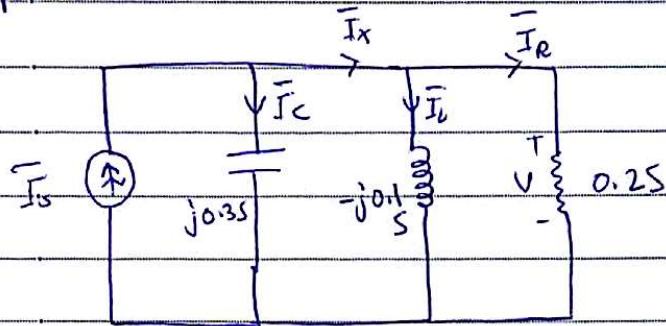 I̅x I̅R
I̅c I̅L
I̅s j0.3S -j0.1 + V 0.2S
S -